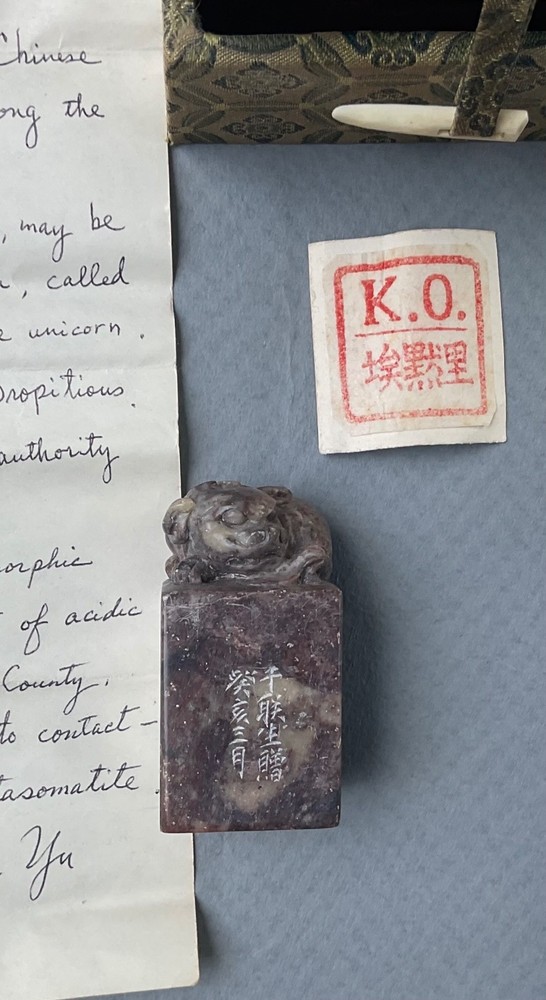 Chinese
ong the
, may be
, called
unicorn.
Propitious.
authority
orphic
of acidic
County.
to contact-
tasomatite.
Yu
K.O.
埃默里
于联生贈
癸亥三月